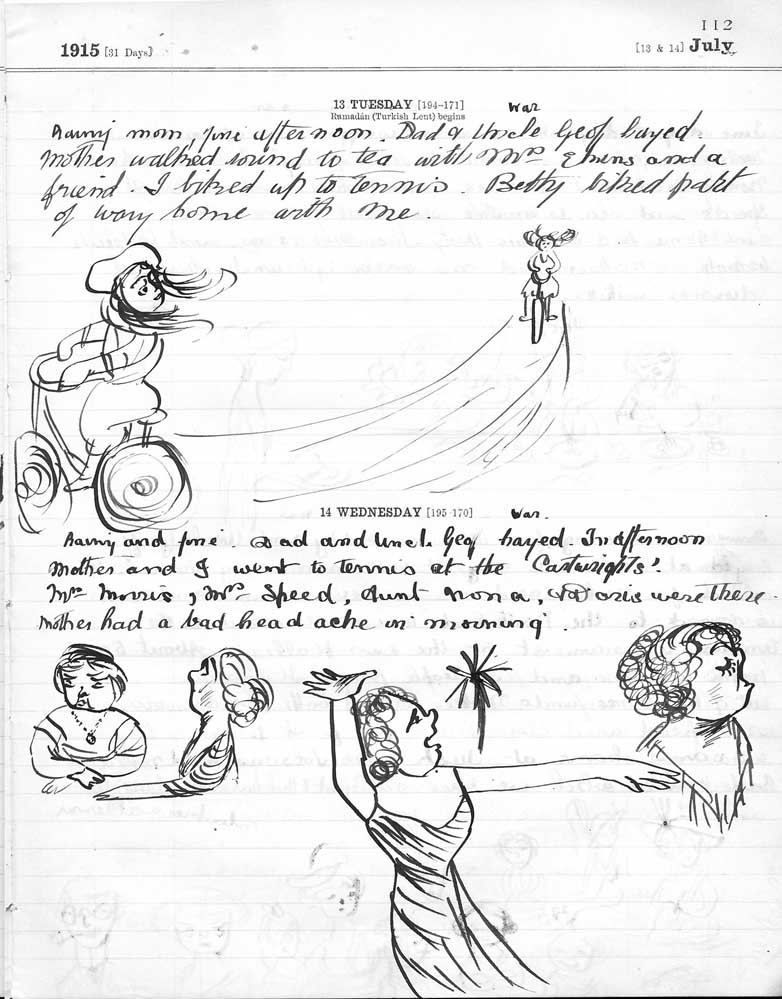 112
1915 [31 Days] [13 & 14] July
13 TUESDAY [194-171] War
Ramadán (Turkish Lent) begins
Rainy morn, fine afternoon. Dad & Uncle Geof hayed.
Mother walked round to tea with Mrs Ekins and a
friend. I biked up to tennis. Betty biked part
of way home with me.
14 WEDNESDAY [195-170] War.
Rainy and fine. Dad and Uncle Geof hayed. In afternoon
Mother and I went to tennis at the Cartwrights'.
Mrs Morris, Mrs Speed, Aunt Nona, & Doris were there.
Mother had a bad head ache in morning.